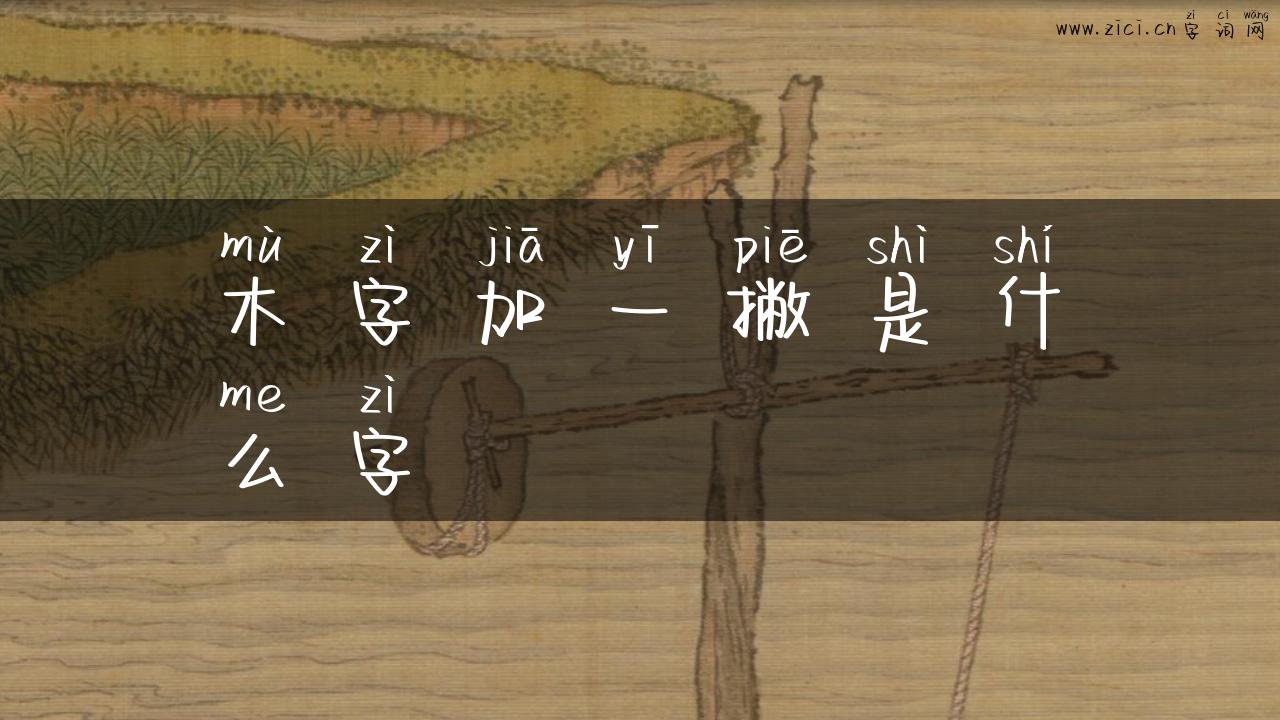 zì cí wǎng
www.zici.cn 字词网
mù zì jiā yī piě shì shí
木字加一撇是什
me zì
么字